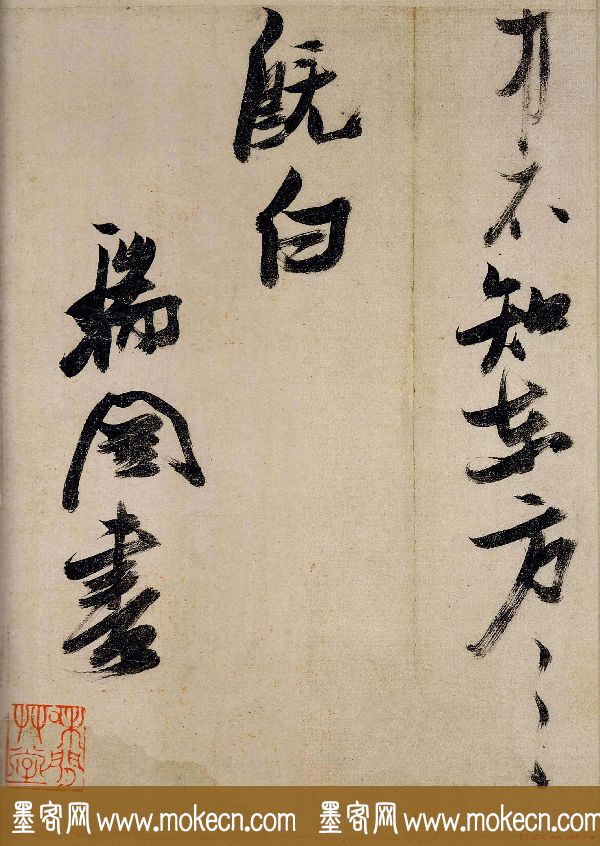 不知東方之
既白
瑞圖書
墨客网 www.mokecn.com 墨客网 www.mokecn.com